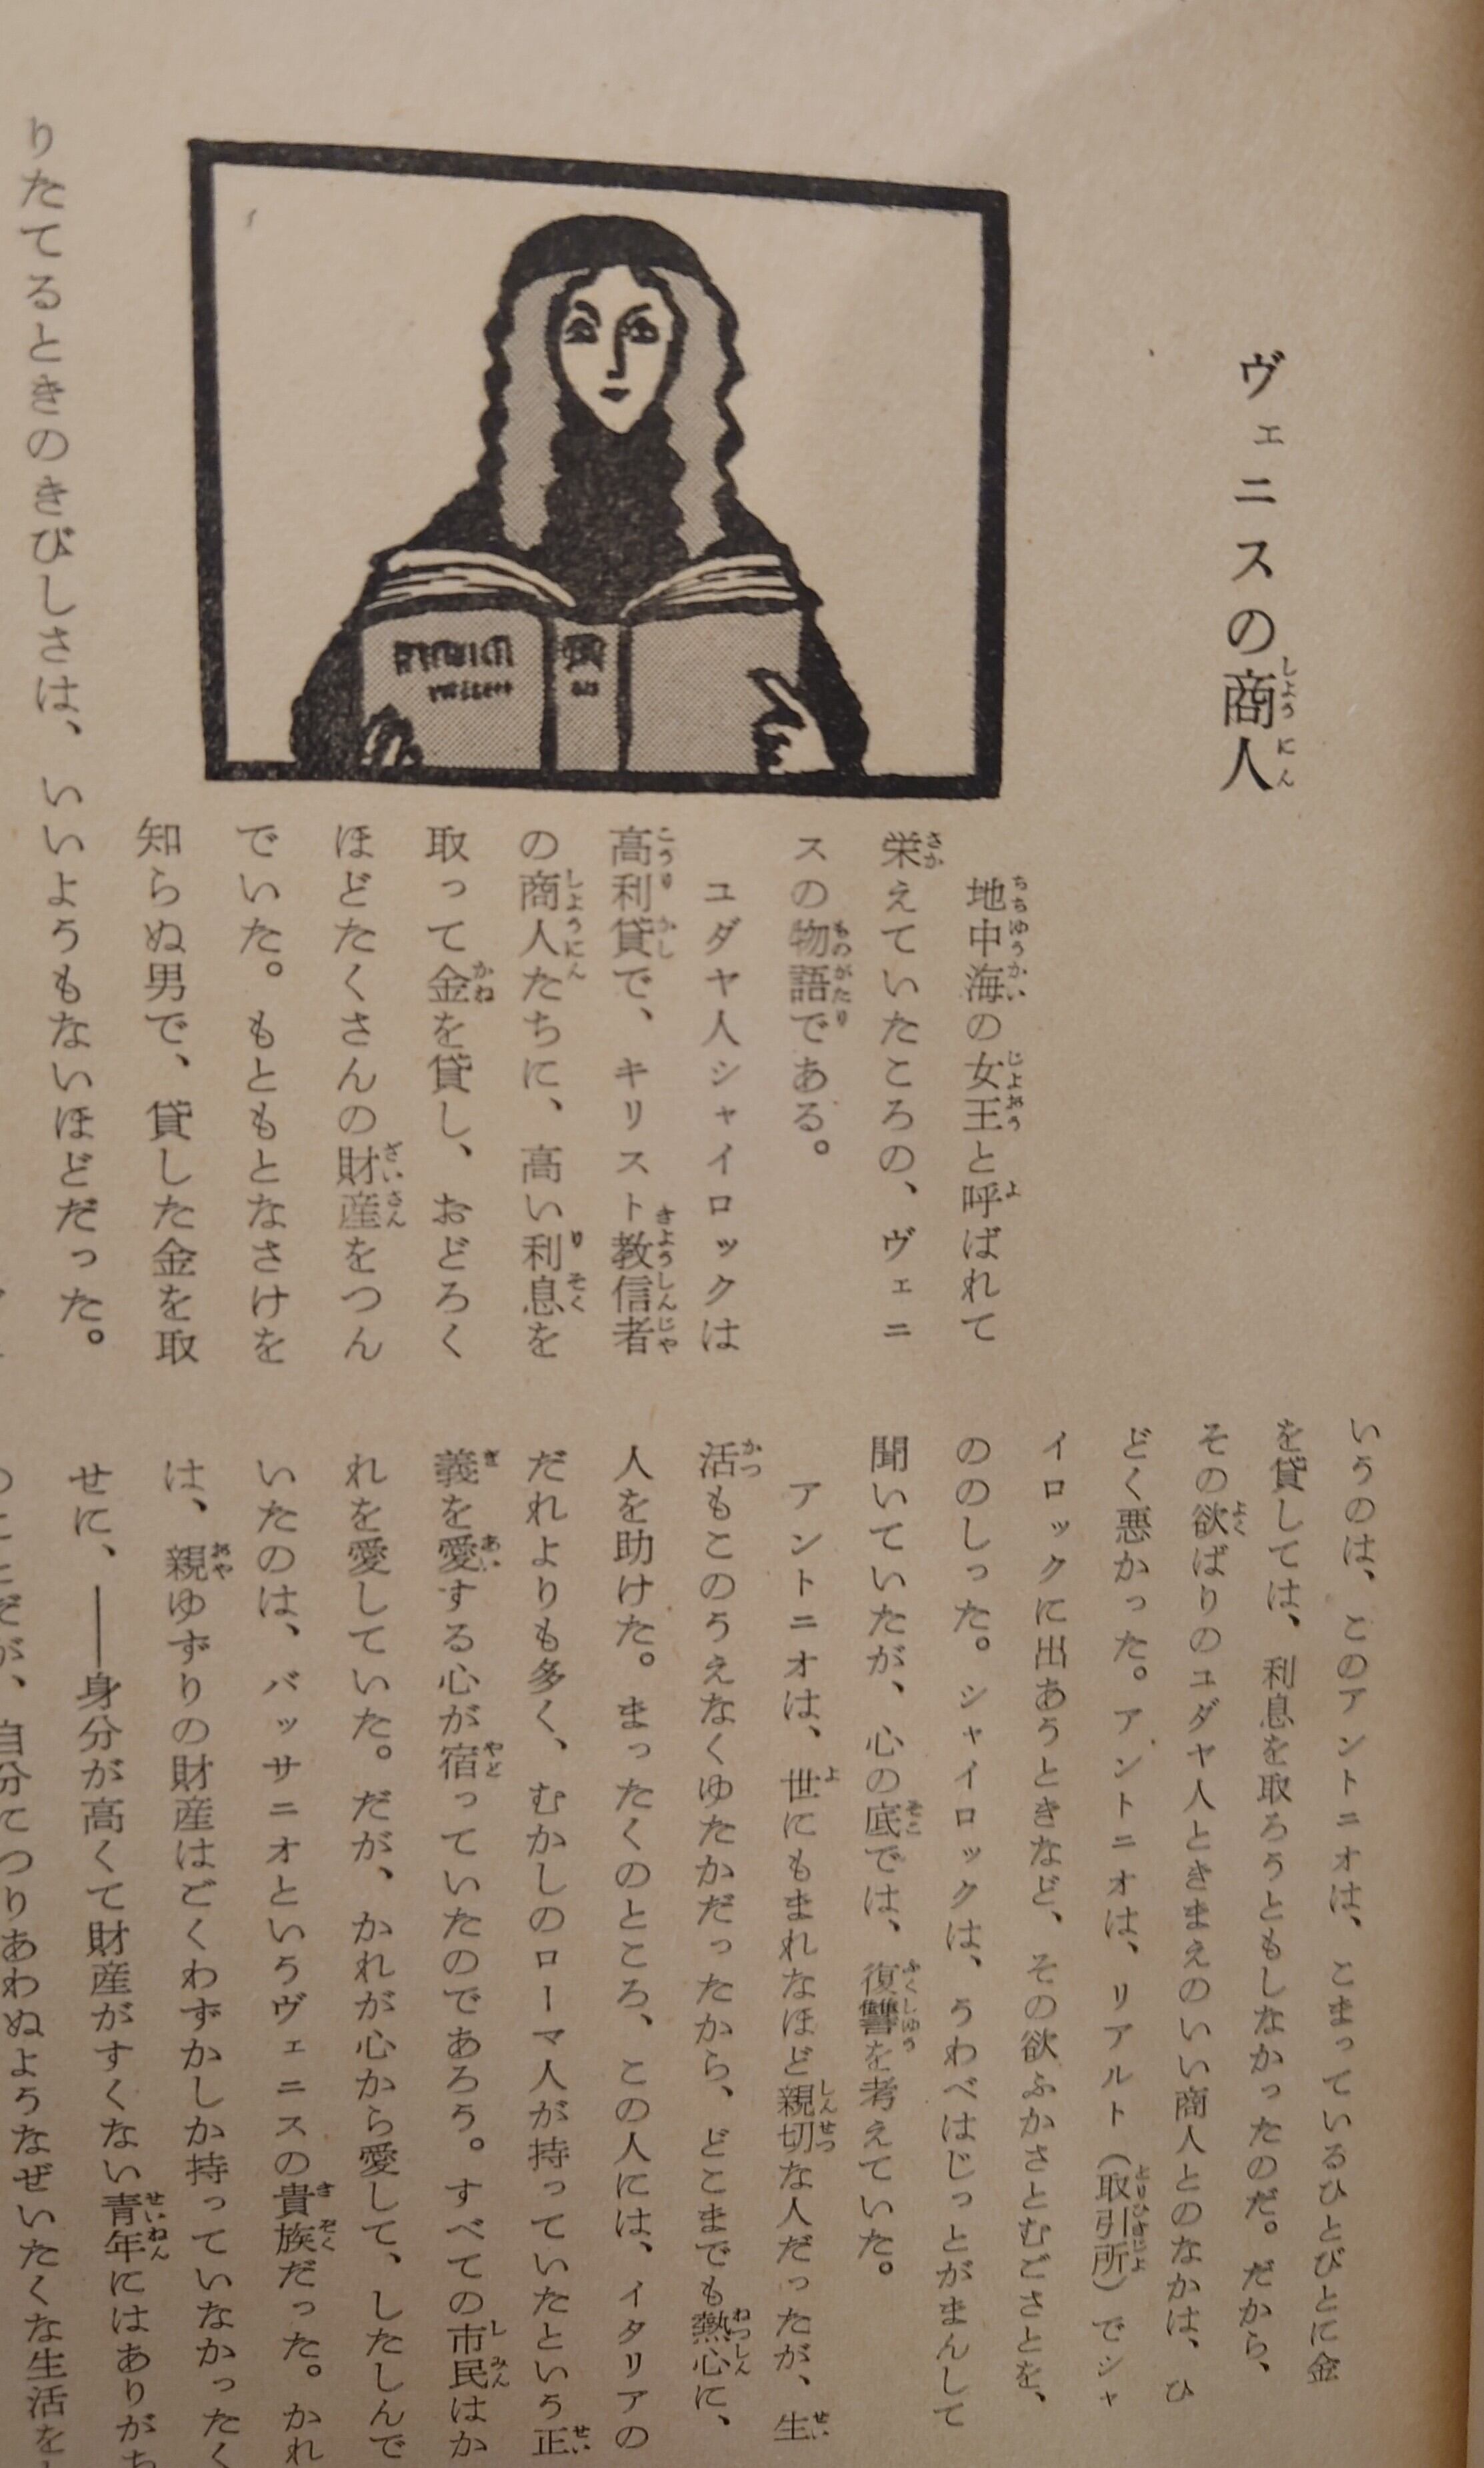 ヴェニスの商人
地中海の女王と呼ばれて
栄えていたころの、ヴェニ
スの物語である。
ユダヤ人シャイロックは
高利貸で、キリスト教信者
の商人たちに、高い利息を
取って金を貸し、おどろく
ほどたくさんの財産をつん
でいた。もともとなさけを
知らぬ男で、貸した金を取
りたてるときのきびしさは、いいようもないほどだった。
いうのは、このアントニオは、こまっているひとびとに金
を貸しては、利息を取ろうともしなかったのだ。だから、
その欲ばりのユダヤ人ときまえのいい商人とのなかは、ひ
どく悪かった。アントニオは、リアルト（取引所）でシャ
イロックに出あうときなど、その欲ふかさとむごさとを、
ののしった。シャイロックは、うわべはじっとがまんして
聞いていたが、心の底では、復讐を考えていた。
アントニオは、世にもまれなほど親切な人だったが、生
活もこのうえなくゆたかだったから、どこまでも熱心に、
人を助けた。まったくのところ、この人には、イタリアの
だれよりも多く、むかしのローマ人が持っていたという正
義を愛する心が宿っていたのであろう。すべての市民はか
れを愛していた。だが、かれが心から愛して、したしんで
いたのは、バッサニオというヴェニスの貴族だった。かれ
は、親ゆずりの財産はごくわずかしか持っていなかったく
せに、――身分が高くて財産がすくない青年にはありがち
だが、自分につりあわぬようなぜいたくな生活を